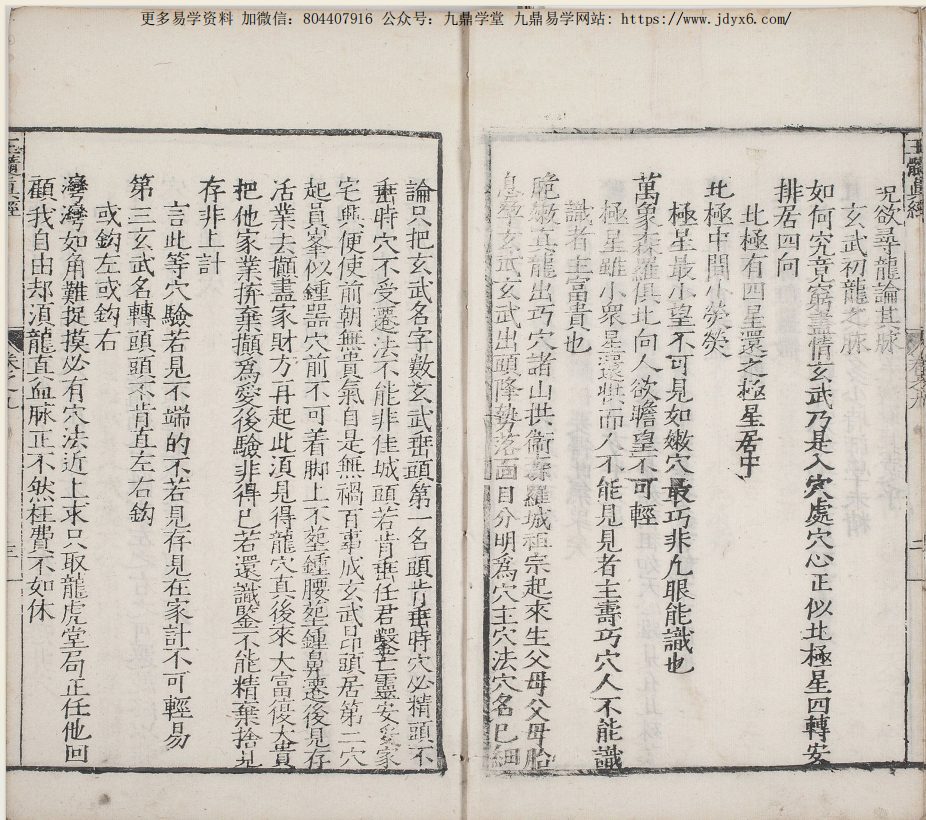 更多易学资料 加微信：804407916 公众号：九鼎学堂 九鼎易学网站：https://www.jdyx6.com/
玉髓真經
卷之九
二
況欲尋龍論其脉
玄武初龍之脉
如何究竟窮盡情玄武乃是入穴處穴心正似北極星四轉安
排居四向
北極有四星還之極星居中
北極中間小熒熒
極星最小望不可見如嫩穴最巧非凡眼能識也
萬象森羅俱北向人欲瞻望不可輕
極星雖小衆星還拱而人不能見見者主壽巧穴人不能識
識者主富貴也
脆嫩真龍出巧穴諸山拱衛森羅城祖宗起來生父母父母胎
息孕玄武玄武出頭降勢落面目分明為穴主穴法穴名已細
論只把玄武名字數玄武垂頭第一名頭肯垂時穴必精頭不
垂時穴不受遷法不能非佳城頭若肯垂任君鑿亡靈安妥家
宅興便使前朝無貴氣自是無禍百事成玄武昂頭居第二穴
起員峯似鍾器穴前不可着脚上不塟鍾腰塟鍾鼻遷後見存
活業去攧盡家財方再起此須見得龍穴真後來大富後大貴
把他家業拚棄攧為癸後驗非得已若還識鑒不能精棄捨見
存非上計
言此等穴驗若見不端的不若見存見在家計不可輕易
第三玄武名轉頭頭不肯直左右鈎
或鈎左或鈎右
灣灣如角難捉摸必有穴法近上求只取龍虎堂局正任他回
顧我自由却須龍真血脉正不然枉費不如休
玉髓真經
卷之九
三